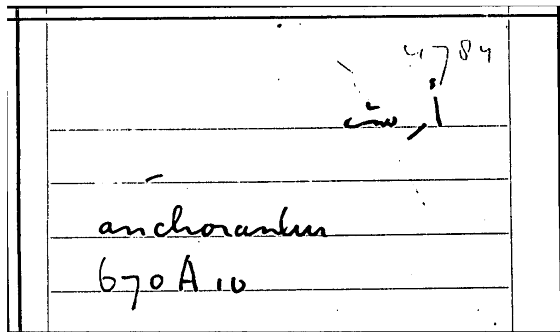 4784
anchorantur
670 A 10